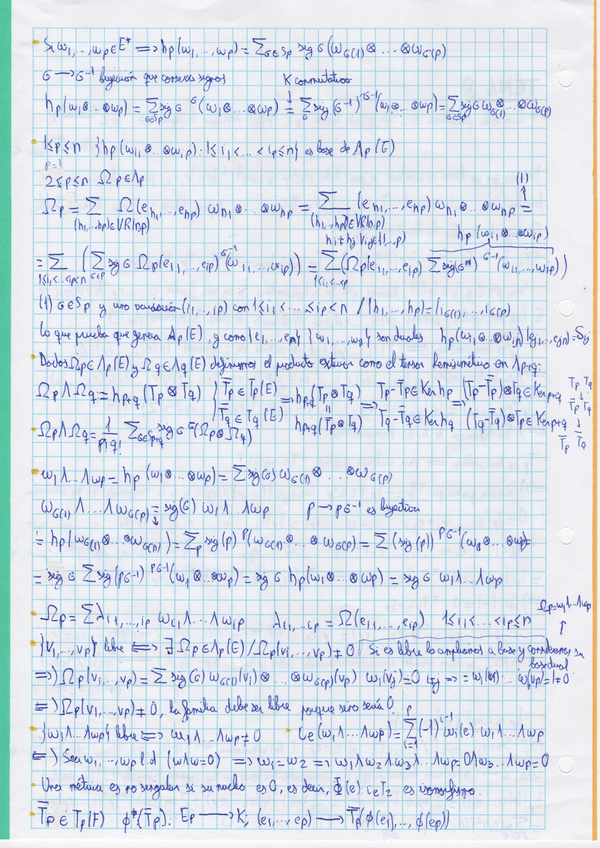 Si ω1, .., ωp ∈ E* ⟹ hp(ω1, .., ωp) = Σσ∈Sp sig σ (ωσ(1) ⊗ ... ⊗ ωσ(p)
σ → σ⁻¹ biyección que conserva signos K conmutativo
hp(ω1 ⊗ .. ⊗ ωp) = Σσ∈Sp sig σ σ(ω1 ⊗ .. ⊗ ωp) = Σσ sig(σ⁻¹) σ⁻¹(ω1 ⊗ .. ⊗ ωp) = Σσ∈Sp sig σ ωσ(1) ⊗ .. ⊗ ωσ(p)
1≤p≤n {hp(ωi1 ⊗ .. ⊗ ωip) : 1≤i1<..<ip≤n} es base de Λp(E)
p=1
2≤p≤n Ωp ∈ Λp (1)
Ωp = Σ Ω(eh1, .., ehp) ωh1 ⊗ .. ⊗ ωhp = Σ (eh1, .., ehp) ωh1 ⊗ .. ⊗ ωhp =
(h1, .., hp) ∈ VR(n,p) (h1, .., hp) ∈ VR(n,p) hi ≠ hj ∀i,j ∈ {1, .., p} hp(ωi1 ⊗ .. ⊗ ωip)
= Σ1≤i1<..<ip≤n (Σσ∈p sig σ Ωp(ei1, .., eip) σ⁻¹(ωi1, .., ωip)) = Σ1≤i1<..<ip (Ωp(ei1, .., eip) Σ sig(σ⁻¹) σ⁻¹(ωi1, .., ωip))
(1) σ∈Sp y una variación (i1, .., ip) con 1≤i1<..<ip≤n / (h1, .., hp) = (iσ(1), .., iσ(p)
lo que prueba que genera Λp(E), y como {e1, .., en} {ω1, .., ωn} son duales hp(ωi1 ⊗ .. ⊗ ωin)(ej1, .., ejn) = δij
Dados Ωp ∈ Λp(E) y Ωq ∈ Λq(E) definimos el producto exterior como el tensor hemisimétrico en Λp+q:
Ωp Λ Ωq = hp+q(Tp ⊗ Tq) { T̄p ∈ Tp(E) T̄q ∈ Tq(E) ⟹ hp+q(Tp ⊗ Tq) = hp+q(T̄p ⊗ T̄q) ⟹ Tp − T̄p ∈ Ker hp Tq − T̄q ∈ Ker hq ⟹ (Tp − T̄p) ⊗ Tq ∈ Ker hp+q (Tq − T̄q) ⊗ T̄p ∈ Ker hp+q Tp Tq ↓ T̄p Tq ↓ T̄p T̄q
Ωp Λ Ωq = 1/p!q! Σσ∈Sp+q sig σ σ(Ωp ⊗ Ωq)
ω1 Λ .. Λ ωp = hp(ω1 ⊗ .. ⊗ ωp) = Σ sig(σ) ωσ(1) ⊗ .. ⊗ ωσ(p)
ωσ(1) Λ .. Λ ωσ(p) = sig(σ) ω1 Λ .. Λ ωp ρ → ρσ⁻¹ es biyectiva
= hp(ωσ(1) ⊗ .. ⊗ ωσ(n)) = Σρ sig(ρ) ρ(ωσ(1) ⊗ .. ⊗ ωσ(p) = Σ (sig(ρ)) ρσ⁻¹(ω1 ⊗ .. ⊗ ωp) =
= sig σ Σ sig(ρσ⁻¹) ρσ⁻¹(ω1 ⊗ .. ⊗ ωp) = sig σ hp(ω1 ⊗ .. ⊗ ωp) = sig σ ω1 Λ .. Λ ωp
Ωp = Σ λi1, .., ip ωi1 Λ .. Λ ωip λi1, .., ip = Ω(ei1, .., eip) 1≤i1<..<ip≤n Ωp = ω1 Λ .. Λ ωp
{v1, .., vp} libre ⟺ ∃ Ωp ∈ Λp(E) / Ωp(v1, .., vp) ≠ 0 Si es libre lo ampliamos a base y consideramos su base dual
⟹) Ωp(v1, .., vp) = Σ sig(σ) ωσ(1)(v1) ⊗ .. ⊗ ωσ(p)(vp) ωi(vj) = 0 i≠j ⟹ = ω1(v1) .. ωp(vp) = 1 ≠ 0
⟸) Ωp(v1, .., vp) ≠ 0, la familia debe ser libre porque sino sería 0
{ω1 Λ .. Λ ωp} libre ⟺ ω1 Λ .. Λ ωp ≠ 0 ie(ω1 Λ .. Λ ωp) = Σi=1p (−1)i−1 ωi(e) ω1 Λ .. Λ ωp
⟸) Sea ω1, .., ωp l.d (ωΛω=0) ⟹ ω1 = ω2 ⟹ ω1 Λ ω2 Λ ω3 Λ .. Λ ωp = 0 Λ ω3 .. Λ ωp = 0
Una métrica es no singular si su nucleo es 0, es decir, Φ(e) = ieT2 es isomorfismo.
T̄p ∈ Tp(F) φ*(T̄p): Ep → K; (e1, .., ep) → T̄p(φ(e1), .., φ(ep))